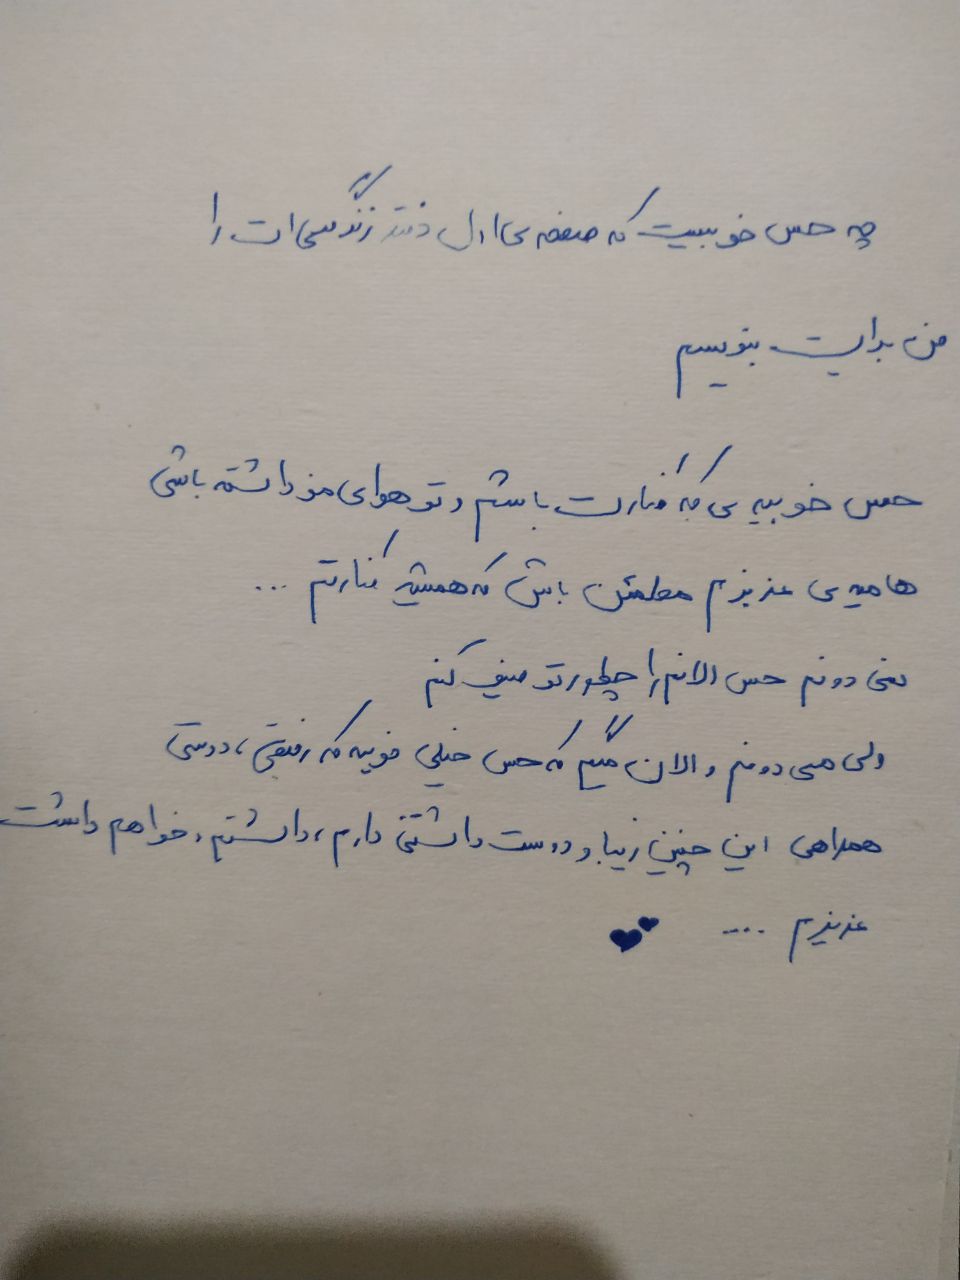 چه حس خوبیست که صفحه ی اول دفتر زندگی ات را
من برایت بنویسم
حس خوبیه ی که کنارت باشم و تو هوای منو داشته باشی
هامیه ی عزیزم مطمئن باش که همیشه کنارتم ...
نمی دونم حس الانم را چطور توصیف کنم
ولی می دونم و الان میگم که حس خیلی خوبیه که رفیقی، دوستی
همراهی این چنین زیبا و دوست داشتنی دارم، داشتم و خواهم داشت
عزیزم ....